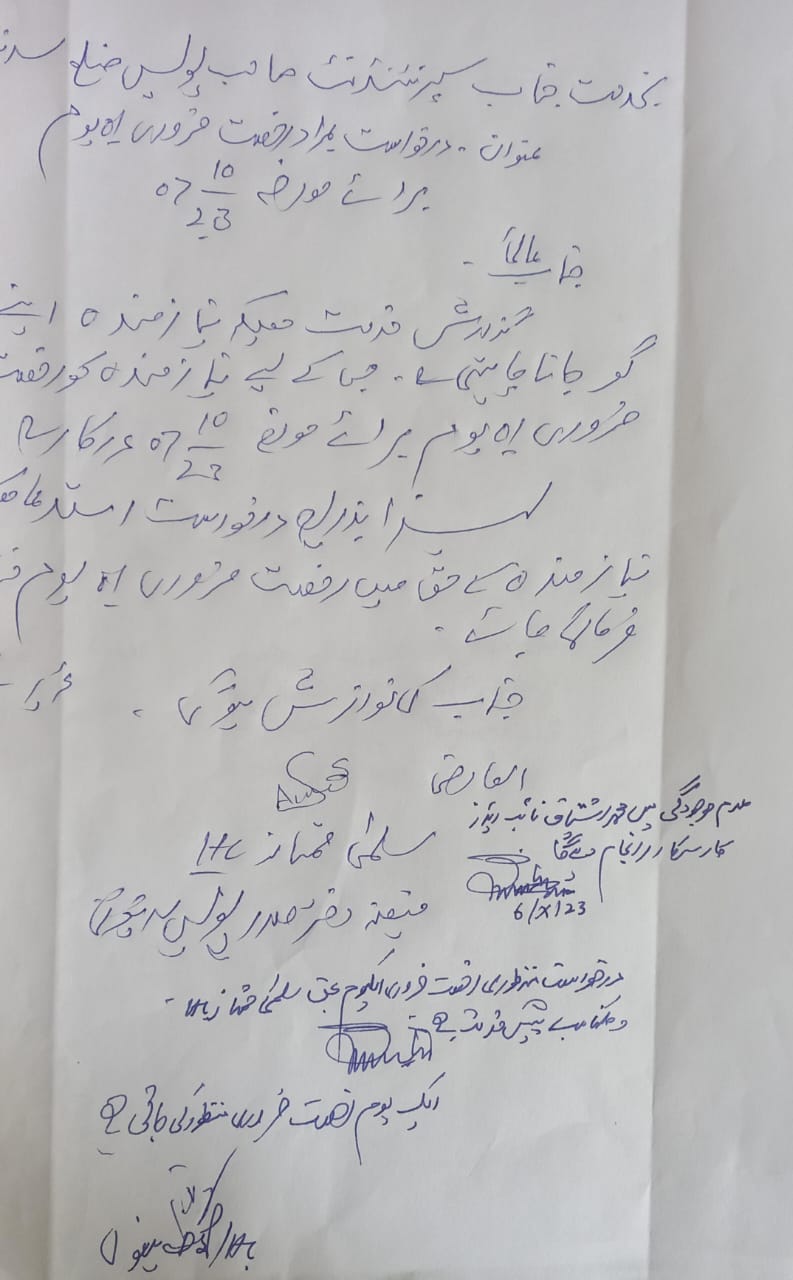 بخدمت جناب سپرنٹنڈنٹ صاحب پولیس ضلع
عنوان۔ درخواست بمراد رخصت ضروری یوم
برائے مورخہ 07 10/23
جناب عالیٰ۔
گذارش خدمت ہیکہ نیازمندہ اپنے
گو جانا چاہتی ہے۔ جس کے لیے نیازمندہ کو رخصت
ضروری یوم برائے مورخہ 07 10/23 درکار ہے
لہذا بذریعہ درخواست استدعا
نیازمندہ کے حق میں رخصت ضروری یوم
فرمائی جائے۔
جناب کی نوازش ہوگی۔
العارضہ
سلمیٰ ممتاز HC
متعینہ دفتر صدر پولیس
عدم موجودگی میں محمد اشتیاق نائب
کار سرکار سرانجام دے گا
6/X/23
درخواست منظوری رخصت ضروری ایکیوم بحق سلمیٰ ممتاز HC
پیش خدمت ہے
ایک یوم رخصت ضروری منظور کی جاتی ہے